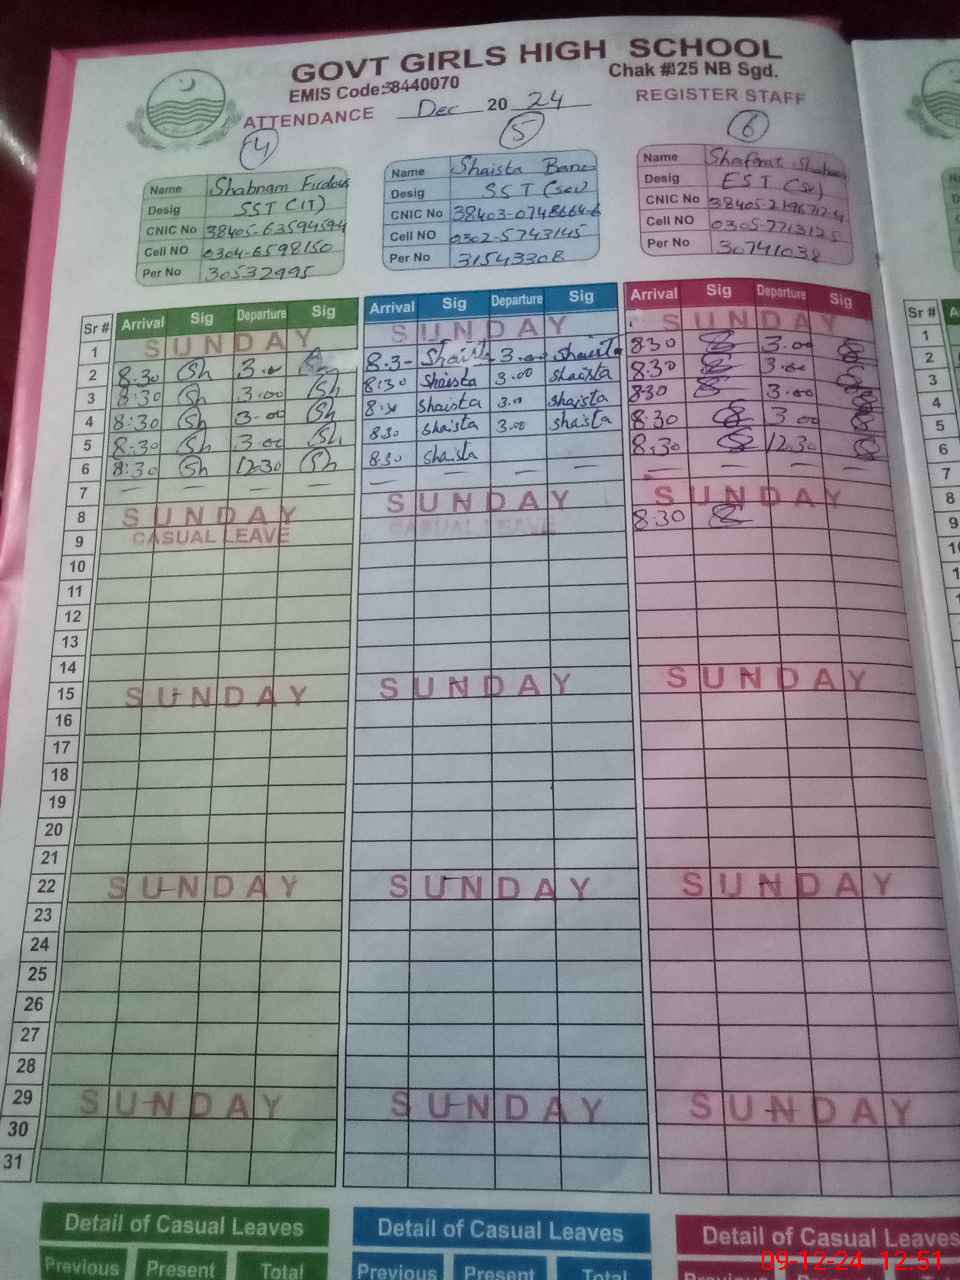 GOVT GIRLS HIGH SCHOOL
EMIS Code:38440070 Chak #125 NB Sgd.
ATTENDANCE Dec 20 24 REGISTER STAFF
4 5 6
Name Shabnam Firdous
Desig SST (IT)
CNIC No 38405-6359459-4
Cell NO 0304-6598150
Per No 30532995
Name Shaista Bano
Desig SST (Sci)
CNIC No 38403-0748664-6
Cell NO 0302-5743145
Per No 31543308
Name
Desig EST
CNIC No
Cell NO 0305-7713125
Per No 30741038
Sr # Arrival Sig Departure Sig Arrival Sig Departure Sig Arrival Sig Departure Sig Sr #
1 SUNDAY SUNDAY SUNDAY 1
2 8.30 Sh 3.00 8.3- Shaista 3.00 Shaista 830 3.00 2
3 8:30 Sh 3.00 Sh 8:30 Shaista 3.00 Shaista 8.30 3.00 3
4 8:30 Sh 3.00 Sh 8:30 Shaista 3.00 Shaista 830 3.00 4
5 8:30 Sh 3.00 Sh 8:30 Shaista 3.00 Shaista 8.30 3.00 5
6 8:30 Sh 12:30 Sh 8:30 Shaista 8.30 12.30 6
7 — — — — — — — — — — 7
8 SUNDAY SUNDAY SUNDAY 8
9 CASUAL LEAVE CASUAL LEAVE 8.30 9
10
11
12
13
14
15 SUNDAY SUNDAY SUNDAY
16
17
18
19
20
21
22 SUNDAY SUNDAY SUNDAY
23
24
25
26
27
28
29 SUNDAY SUNDAY SUNDAY
30
31
Detail of Casual Leaves Detail of Casual Leaves Detail of Casual Leaves
Previous Present Total Previous Present Total
09-12-24 12:51